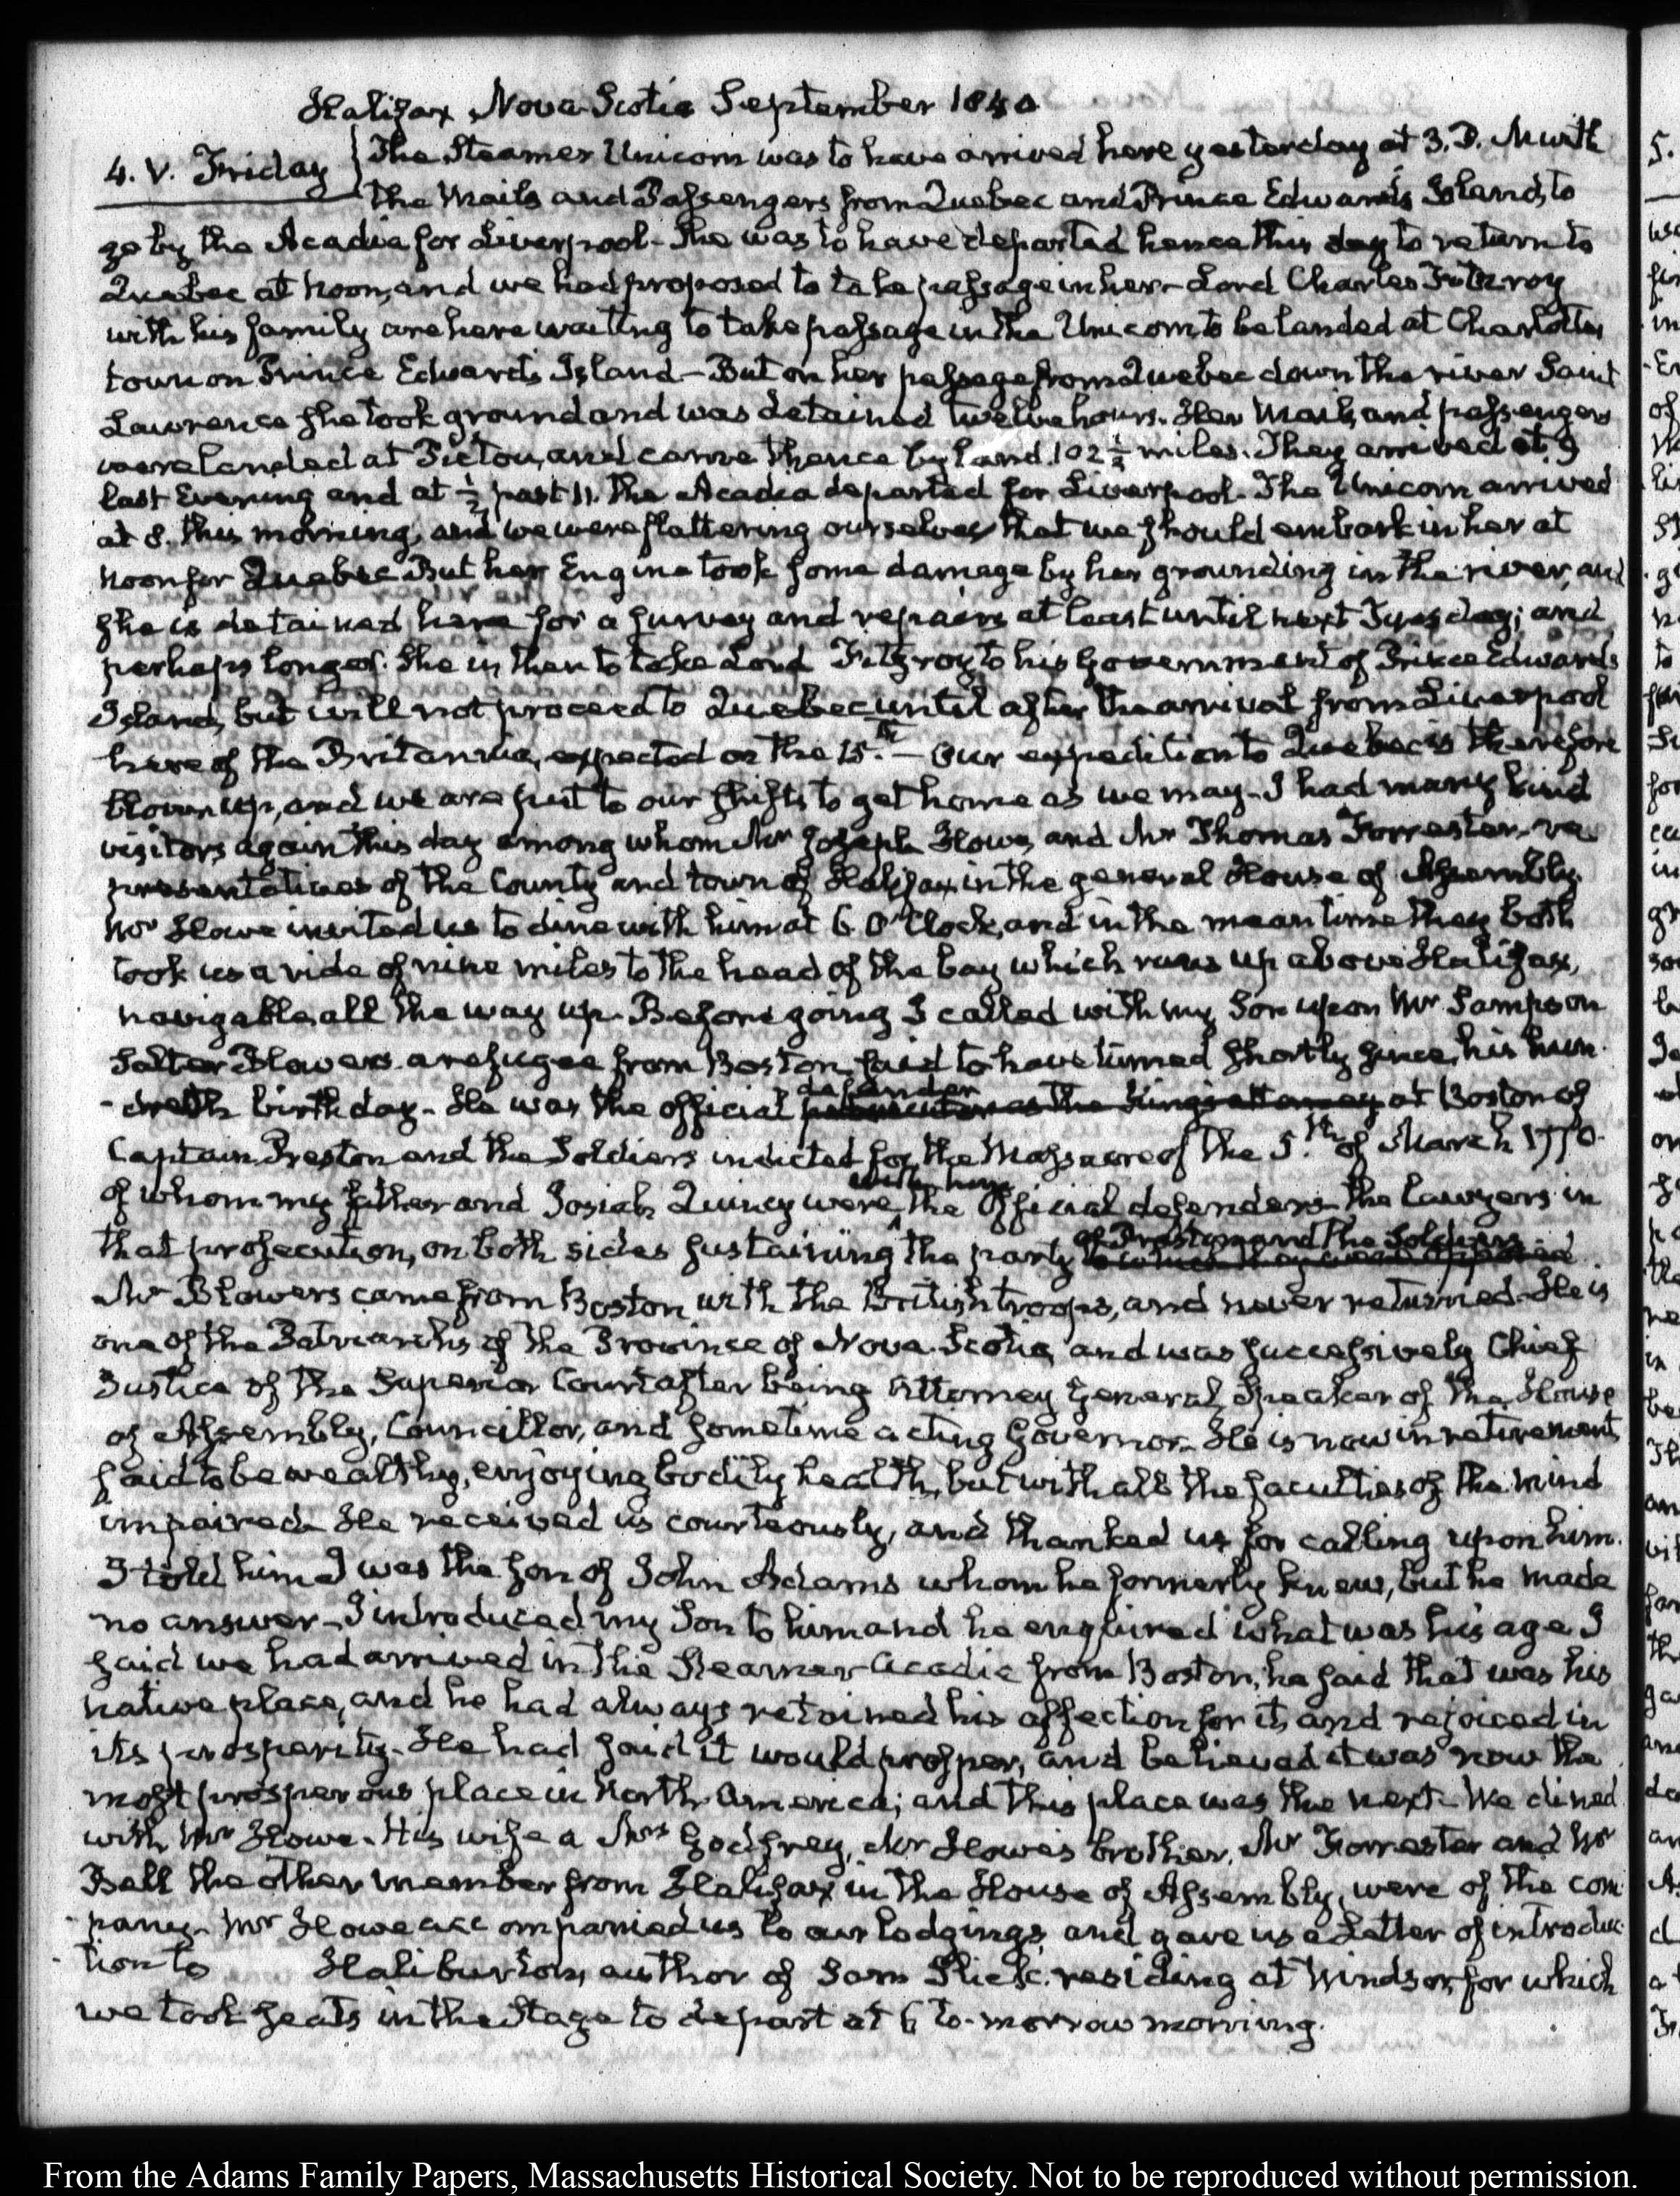 Halifax Nova-Scotia September 1840
4. V. Friday } The Steamer Unicorn was to have arrived here yesterday at 3. P. M with
the Mails and Passengers from Quebec and Prince Edward's Island, to
go by the Acadia for Liverpool- She was to have departed hence this day to return to
Quebec at Noon, and we had proposed to take passage in her- Lord Charles Fitzroy
with his family are here waiting to take passage in the Unicorn to be landed at Charlotte
town on Prince Edward's Island- But on her passage from Quebec down the river Saint
Lawrence she took ground and was detained twelve hours. Her Mails, and passengers
were landed at Pictou, and came thence by land. 102 ½ miles. They arrived at 9
last Evening and at ½ past 11. the Acadia departed for Liverpool. The Unicorn arrived
at 8. this morning, and we were flattering ourselves that we should embark in her at
Noon for Quebec But her Engine took some damage by her grounding in the river, and
she is detained here for a survey and repairs at least until next Tuesday; and
perhaps longer. She is then to take Lord Fitzroy to his Government of Prince Edward's
Island, but will not proceed to Quebec until after the arrival from Liverpool
here of the Britannia, expected on the 15th. - Our expedition to Quebec is therefore
blown up, and we are put to our shifts to get home as we may- I had many kind
visitors again this day among whom Mr Joseph Howe, and Mr Thomas Forrester- re
presentatives of the County and town of Halifax in the general House of Assembly.
Mr Howe invited us to dine with him at 6 O'Clock, and in the mean time they both
took us a ride of nine miles to the head of the bay which runs up above Halifax,
navigable all the way up- Before going I called with my Son upon Mr Sampson
Salter Blowers. a refugee from Boston, said to have turned shortly since, his hun-
-dredth birth day- He was the official defender
prosecutor as the King's attorney at Boston of
Captain Preston and the Soldiers indicted for the Massacre of the 5.th of March 1770.
of whom my father and Josiah Quincy were with him the Official defenders- the lawyers in
that prosecution, on both sides sustaining the party of Preston and the Soldiers
to which they were opposed
Mr Blowers came from Boston with the British troops, and never returned- He is
one of the Patriarchs of the Province of Nova-Scotia, and was successively Chief
Justice of the Superior Court after being Attorney General, Speaker of the House
of Assembly, Councillor, and sometime acting Governor- He is now in retirement,
said to be wealthy, enjoying bodily health, but with all the faculties of the mind
impaired- He received us courteously, and thanked us for calling upon him.
I told him I was the son of John Adams whom he formerly knew, but he made
no answer- I introduced my Son to him and he enquired what was his age. I
said we had arrived in the Steamer Acadia from Boston; he said that was his
native place, and he had always retained his affection for it, and rejoiced in
its prosperity- He had said it would prosper, and believed it was now the
most prosperous place in North-America; and this place was the next- We dined
with Mr Howe- His wife a Mrs Godfrey, Mr Howe's brother, Mr Forrester and Mr
Bell the other member from Halifax in the House of Assembly, were of the com-
-pany- Mr Howe accompanied us to our lodgings, and gave us a Letter of introduc
-tion to Haliburton, author of Sam Slick. residing at Windsor, for which
we took seats in the Stage to depart at 6 to-morrow morning.
From the Adams Family Papers, Massachusetts Historical Society. Not to be reproduced without permission.